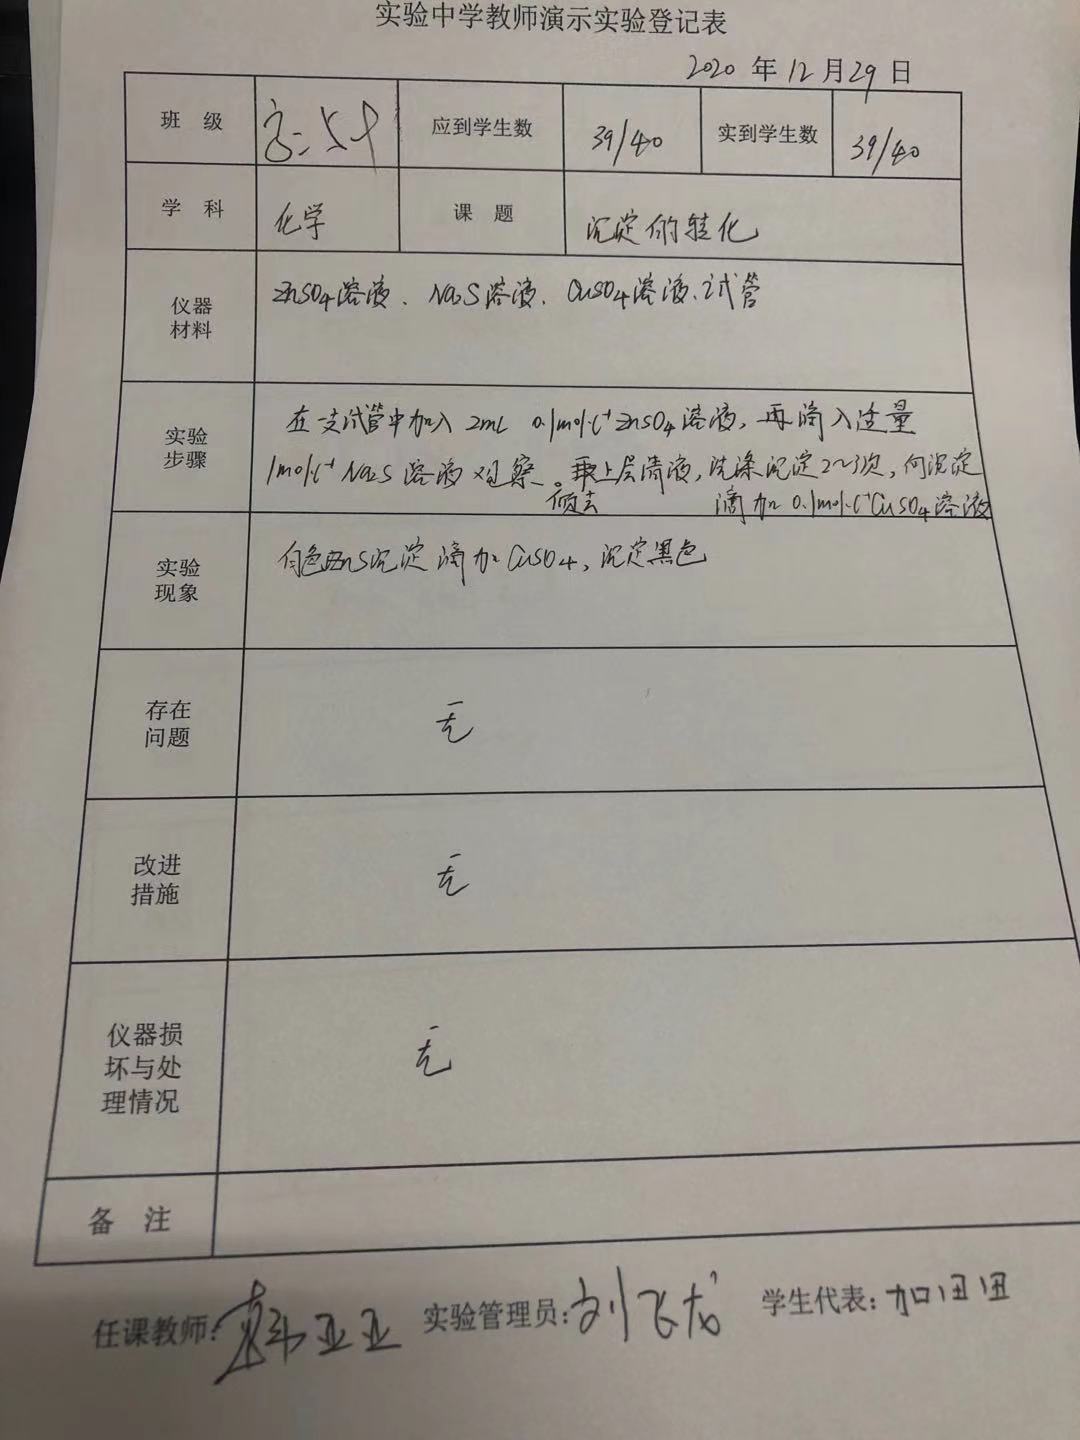 实验中学教师演示实验登记表
2020 年 12 月 29 日
班 级 高二 应到学生数 39/40 实到学生数 39/40
学 科 化学 课 题 沉淀的转化
仪器材料 ZnSO4溶液、Na2S溶液、CuSO4溶液、试管
实验步骤
在一支试管中加入 2mL 0.1mol·L⁻¹ ZnSO4溶液,再滴入适量
1mol·L⁻¹ Na2S 溶液观察。取上层清液,洗涤沉淀2~3次,向沉淀
倾去 滴加 0.1mol·L⁻¹CuSO4溶液
实验现象 白色ZnS沉淀滴加CuSO4,沉淀黑色
存在问题 无
改进措施 无
仪器损坏与处理情况 无
备 注
任课教师: 亚亚 实验管理员:刘飞龙 学生代表:加